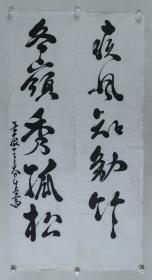 疾风知劲竹
冬嶺秀孤松